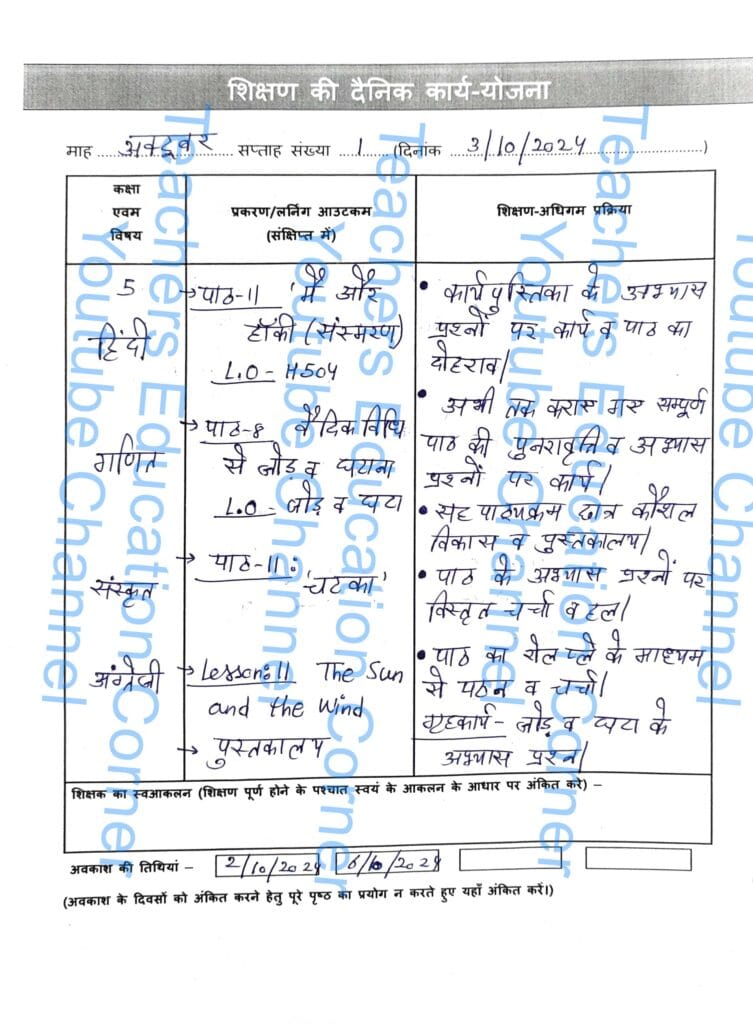 शिक्षण की दैनिक कार्य-योजना
माह अक्टूबर सप्ताह संख्या 1 (दिनांक 3/10/2024)
कक्षा
एवम
विषय
प्रकरण/लर्निग आउटकम
(संक्षिप्त में)
शिक्षण-अधिगम प्रक्रिया
5
हिंदी
→पाठ-11 'मैं और
हॉकी (संस्मरण)
L.O - H504
• कार्यपुस्तिका के अभ्यास
प्रश्नों पर कार्य व पाठ का
दोहराव।
गणित
→पाठ-8 वैदिक विधि
से जोड़ व घटाना
L.O - जोड़ व घटा
• अभी तक कराए गए सम्पूर्ण
पाठ की पुनरावृत्ति व अभ्यास
प्रश्नों पर कार्य।
• सह पाठ्यक्रम छात्र कौशल
विकास व पुस्तकालय।
संस्कृत
→ पाठ-11:
'चटका'
• पाठ के अभ्यास प्रश्नों पर
विस्तृत चर्चा व हल।
अंग्रेजी
→Lesson:11 The Sun
and the Wind
→ पुस्तकालय
• पाठ का रोल प्ले के माध्यम
से पठन व चर्चा।
गृहकार्य - जोड़ व घटा के
अभ्यास प्रश्न।
शिक्षक का स्वआकलन (शिक्षण पूर्ण होने के पश्चात स्वयं के आकलन के आधार पर अंकित करे) –
अवकाश की तिथियां – 2/10/2024 6/10/2024
(अवकाश के दिवसों को अंकित करने हेतु पूरे पृष्ठ का प्रयोग न करते हुए यहाँ अंकित करें।)
Teachers Education Corner
Youtube Channel
Teachers Education Corner
Youtube Channel
Teachers Education Corner
Youtube Channel